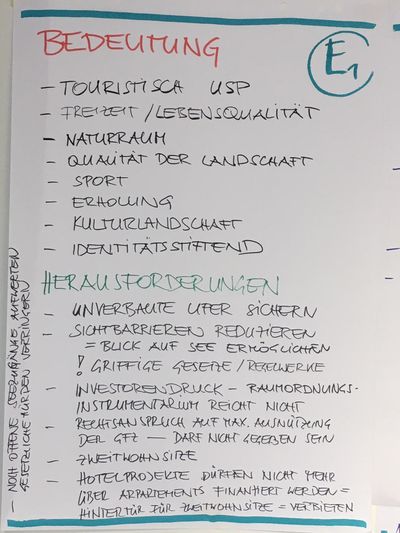 BEDEUTUNG
E1
– TOURISTISCH USP
– FREIZEIT / LEBENSQUALITÄT
– NATURRAUM
– QUALITÄT DER LANDSCHAFT
– SPORT
– ERHOLUNG
– KULTURLANDSCHAFT
– IDENTITÄTSSTIFTEND
HERAUSFORDERUNGEN
– UNVERBAUTE UFER SICHERN
– SICHTBARRIEREN REDUZIEREN
= BLICK AUF SEE ERMÖGLICHEN
! GRIFFIGE GESETZE / REGELWERKE
– INVESTORENDRUCK – RAUMORDNUNGS-
INSTRUMENTARIUM REICHT NICHT
– RECHTSANSPRUCH AUF MAX. AUSNÜTZUNG
DER GFZ — DARF NICHT GEGEBEN SEIN
– ZWEITWOHNSITZE
– HOTELPROJEKTE DÜRFEN NICHT MEHR
ÜBER APPARTEMENTS FINANZIERT WERDEN =
HINTERTÜR FÜR ZWEITWOHNSITZE = VERBIETEN
– NOCH OFFENE SEEZUGÄNGE AUFWERTEN
GESETZLICHE HÜRDEN VERRINGERN